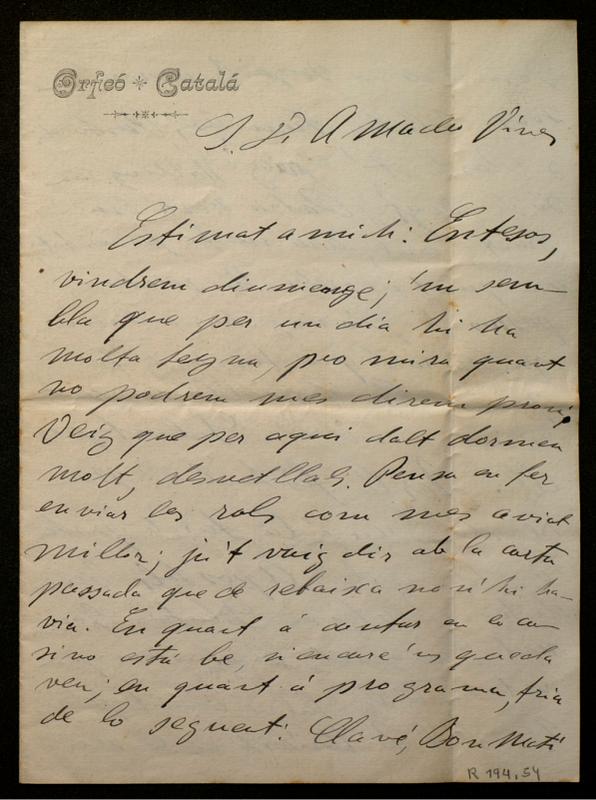 Orfeó Catalá
S. D. Amadeu Vives
Estimat amich: Entesos,
vindrem diumenge; 'm sem-
bla que per un dia hi ha
molta feyna, pro mira quant
no podrem mes direm prou.
Veig que per aqui dalt dormen
molt, desvetllals. Pensa en fer
enviar les rals com mes aviat
millor; ja't vaig dir ab la carta
passada que de rebaixa no n'hi ha-
via. En quant á cantar en lo ca-
sino está be, si encare 'ns queda
veu; en quant á programa, tria
de lo seguent: Clavé, Bon Matí
R 194, 54